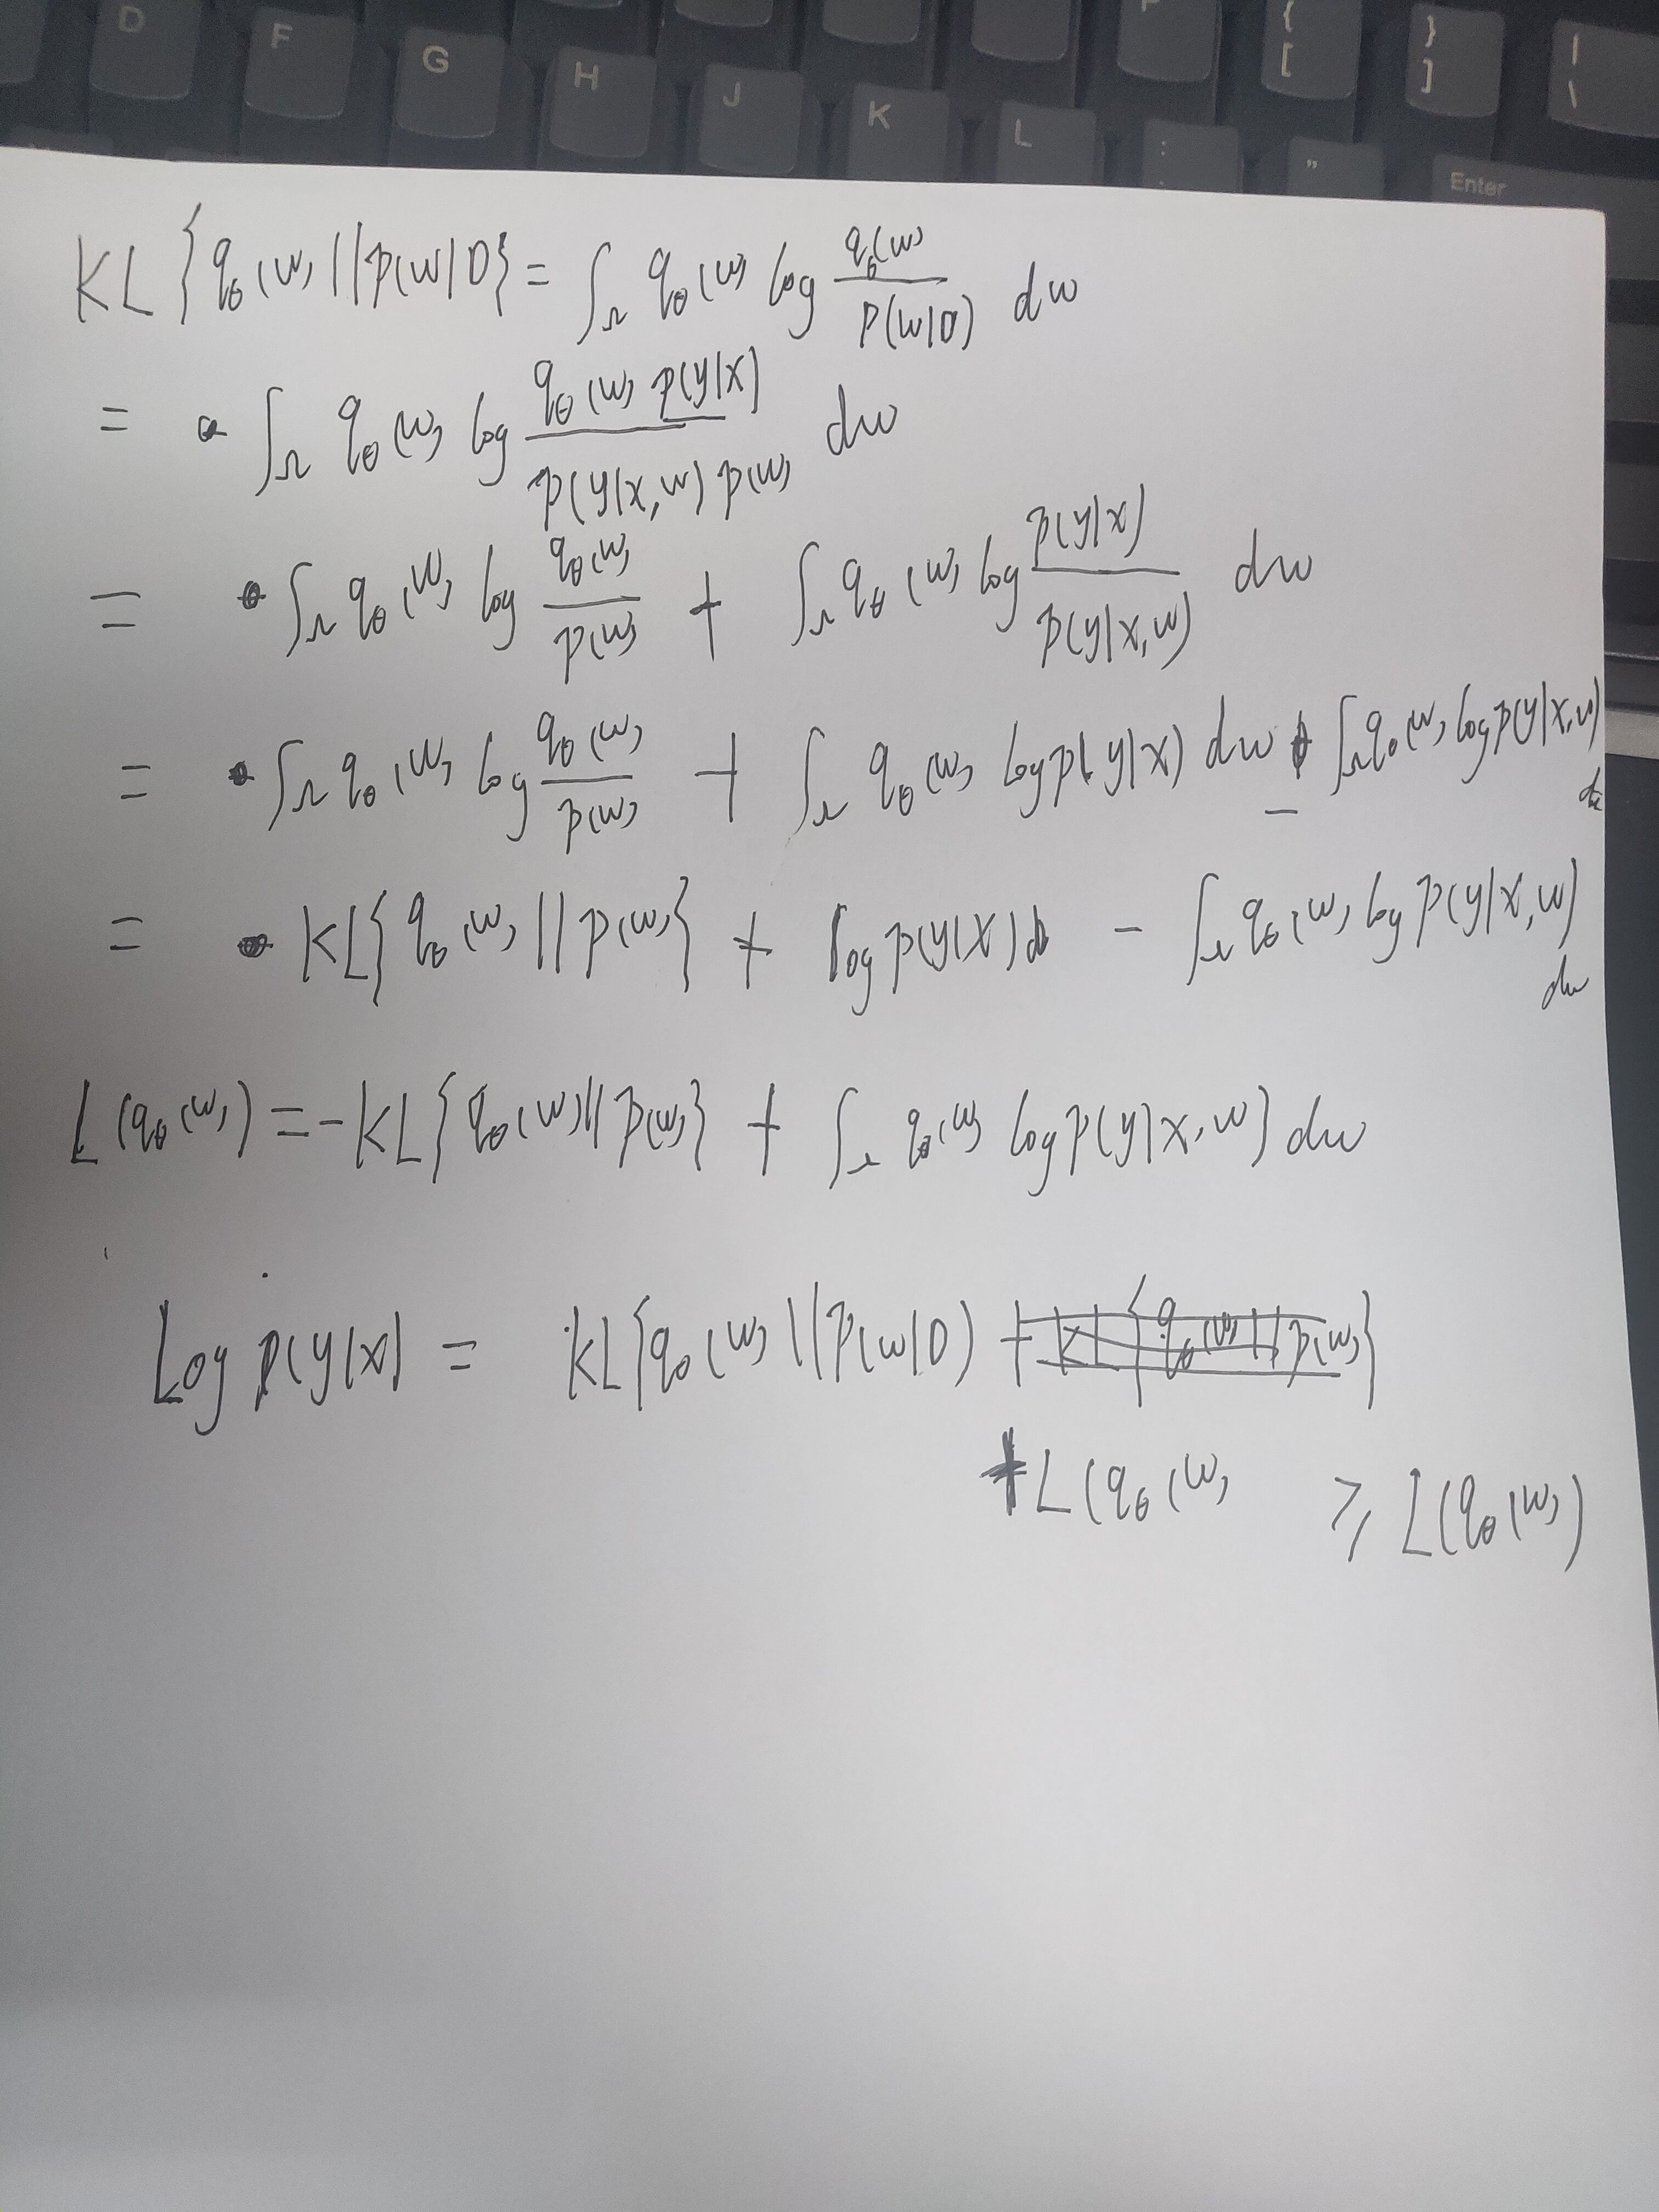 D F G H J K L : " Enter
{ [ } ] | \
KL{qθ(w)||p(w|D} = ∫Ω qθ(w) log qθ(w)/p(w|D) dw
= ∫Ω qθ(w) log qθ(w) p(y|x)/p(y|x,w) p(w) dw
= ∫Ω qθ(w) log qθ(w)/p(w) + ∫Ω qθ(w) log p(y|x)/p(y|x,w) dw
= ∫Ω qθ(w) log qθ(w)/p(w) + ∫Ω qθ(w) log p(y|x) dw - ∫Ω qθ(w) log p(y|x,w) dw
= KL{qθ(w)||p(w)} + log p(y|x) - ∫Ω qθ(w) log p(y|x,w) dw
L(qθ(w)) = -KL{qθ(w)||p(w)} + ∫Ω qθ(w) log p(y|x,w) dw
Log p(y|x) = KL{qθ(w)||p(w|D) + KL{qθ(w)||p(w)}
+ L(qθ(w) ≥ L(qθ(w))